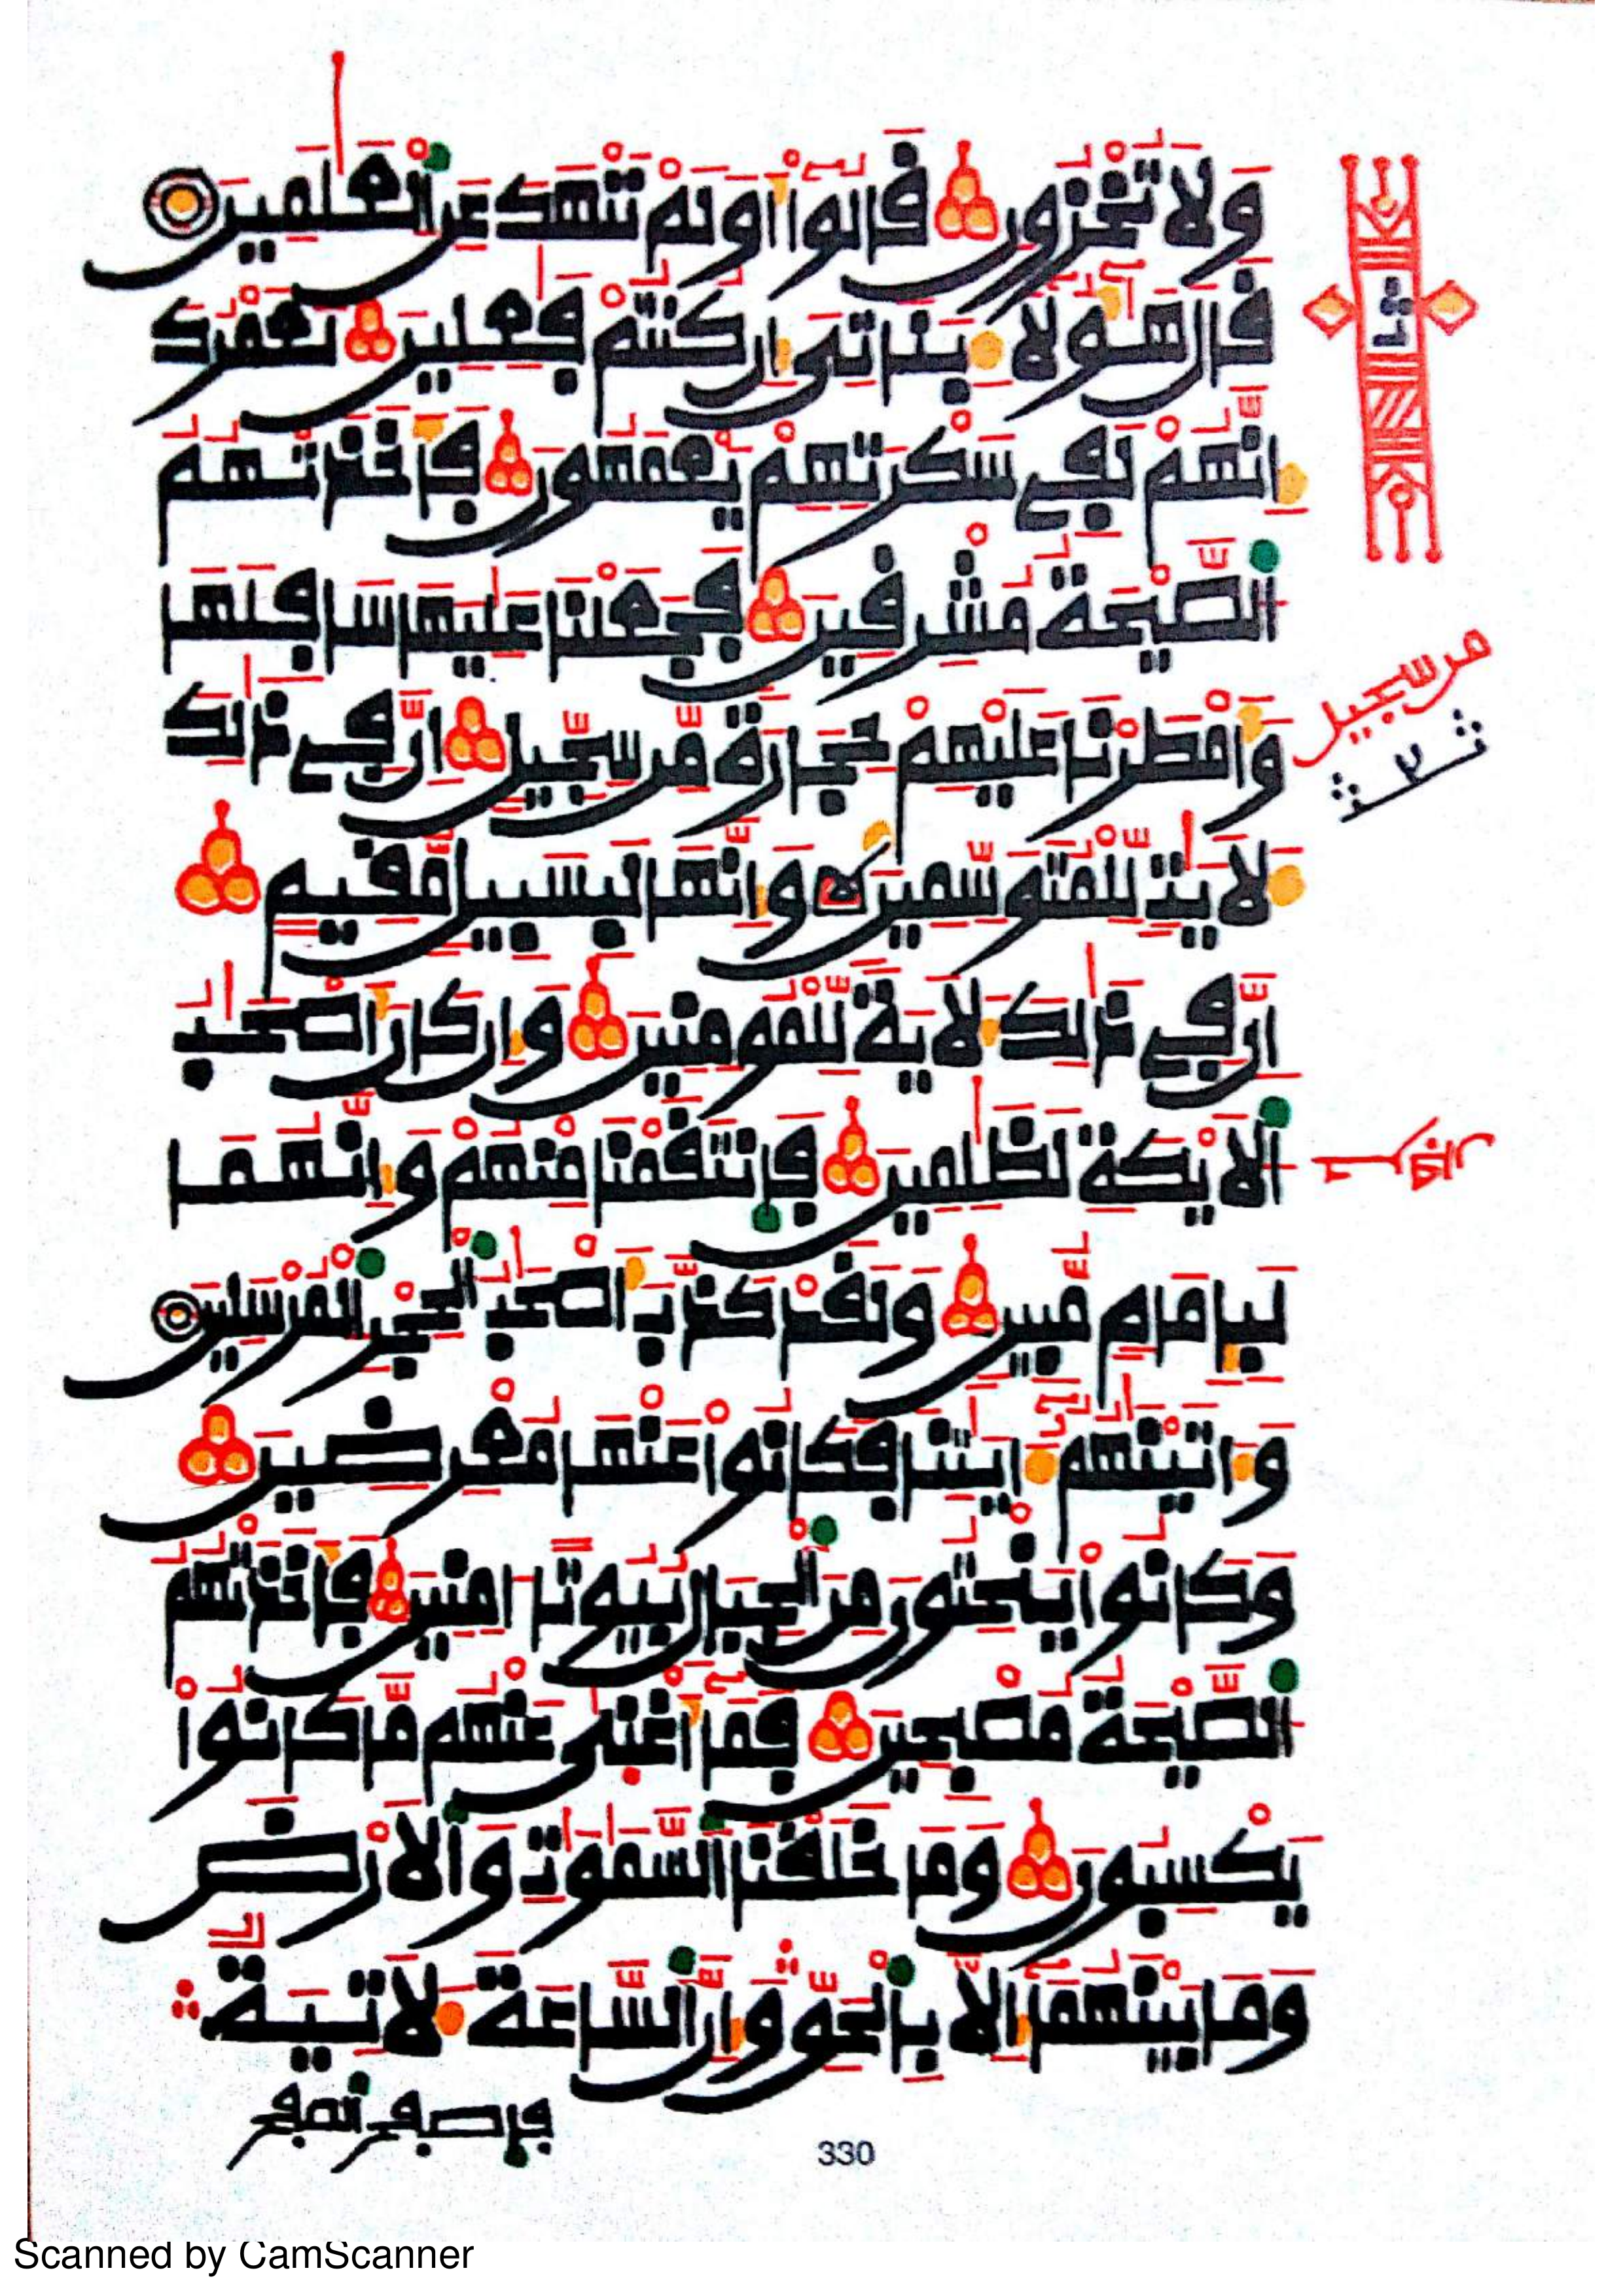 وَلَا تُخْزُونِ قَالُوٓاْ أَوَلَمْ نَنْهَكَ عَنِ اِ۬لْعَٰلَمِينَ
قَالَ هَٰٓؤُلَآءِ بَنَاتِىٓ إِن كُنتُمْ فَٰعِلِينَ لَعَمْرُكَ
إِنَّهُمْ لَفِى سَكْرَتِهِمْ يَعْمَهُونَ فَأَخَذَتْهُمُ
اُ۬لصَّيْحَةُ مُشْرِقِينَ فَجَعَلْنَا عَٰلِيَهَا سَافِلَهَا
وَأَمْطَرْنَا عَلَيْهِمْ حِجَارَةً مِّن سِجِّيلٍ إِنَّ فِى ذَٰلِكَ
من سجيل
لَأٓيَٰتٍ لِّلْمُتَوَسِّمِينَ وَإِنَّهَا لَبِسَبِيلٍ مُّقِيمٍ
إِنَّ فِى ذَٰلِكَ لَأٓيَةً لِّلْمُومِنِينَ وَإِن كَانَ أَصْحَٰبُ
اُ۬لْأَيْكَةِ لَظَٰلِمِينَ فَانتَقَمْنَا مِنْهُمْ وَإِنَّهُمَا
لَبِإِمَامٍ مُّبِينٍ وَلَقَدْ كَذَّبَ أَصْحَٰبُ اُ۬لْحِجْرِ اِ۬لْمُرْسَلِينَ
وَءَاتَيْنَٰهُمُۥٓ ءَايَٰتِنَا فَكَانُواْ عَنْهَا مُعْرِضِينَ
وَكَانُواْ يَنْحِتُونَ مِنَ اَ۬لْجِبَالِ بُيُوتًا ءَامِنِينَ فَأَخَذَتْهُمُ
اُ۬لصَّيْحَةُ مُصْبِحِينَ فَمَآ أَغْنَىٰ عَنْهُم مَّا كَانُواْ
يَكْسِبُونَ وَمَا خَلَقْنَا اَ۬لسَّمَٰوَٰتِ وَالْأَرْضَ
وَمَا بَيْنَهُمَآ إِلَّا بِالْحَقِّ وَإِنَّ اَ۬لسَّاعَةَ لَأٓتِيَةٌ
فاصفح الصفح
330
Scanned by CamScanner